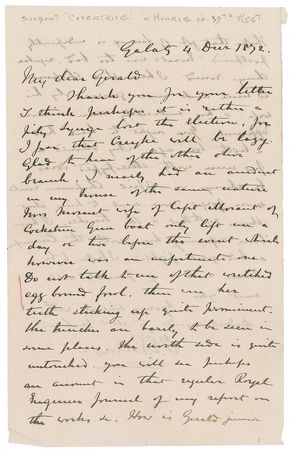 GUNBOAT "COCKATRICE" & MUNROE OF 39TH REGT.
Galatz 4 Decr 1872.
My dear Gerald
Thank you for your letter
I think perhaps it is rather a
pity Synge lost the election, for
I fear that Creyke will be lazy.
Glad to hear of the other olive
branch. I nearly had an accident
in my house of the same nature
Mrs Morant wife of Capt Morant of
Cockatrice Gun boat only left me a
day or two before the event which
however was an unfortunate one
Do not talk to me of that wretched
egg bound fool.
teeth sticking up quite prominent.
The trenches are barely to be seen in
some places. The north side is quite
untouched. you will see perhaps
an account in that regular Royal
Engineer Journal of my report on
the works &c. How is Gerald junior